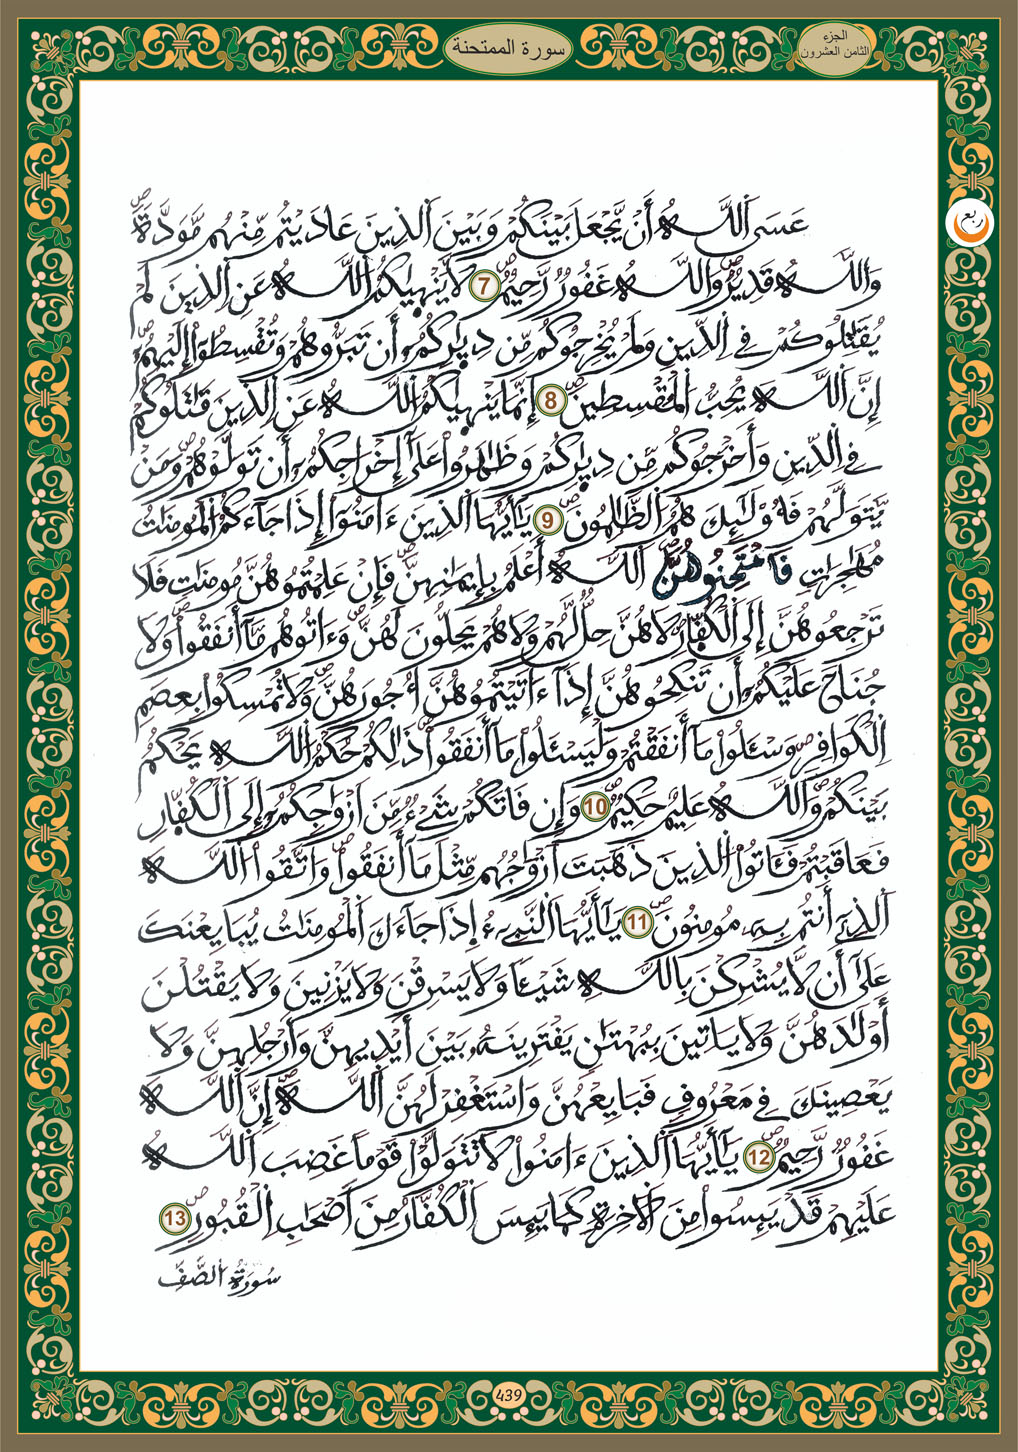 سورة الممتحنة
الجزء
الثامن العشرون
ربع
عَسَى اَللَّهُ أَنْ يَّجْعَلَ بَيْنَكُمْ وَبَيْنَ اَلذِينَ عَادَيْتُم مِّنْهُم مَّوَدَّةٗ
وَاللَّهُ قَدِيرٞ وَاللَّهُ غَفُورٞ رَّحِيمٞ 7 لَا يَنْهَيٰكُمُ اُللَّهُ عَنِ اِلذِينَ لَمْ
يُقَٰتِلُوكُمْ فِے اِلدِّينِ وَلَمْ يُخْرِجُوكُم مِّن دِيٰرِكُمُۥٓ أَن تَبَرُّوهُمْ وَتُقْسِطُوٓاْ إِلَيْهِمُۥٓ
إِنَّ اَللَّهَ يُحِبُّ اُلْمُقْسِطِينَ 8 إِنَّمَا يَنْهَيٰكُمُ اُللَّهُ عَنِ اِلذِينَ قَٰتَلُوكُمْ
فِے اِلدِّينِ وَأَخْرَجُوكُم مِّن دِيٰرِكُمْ وَظَٰهَرُواْ عَلَىٰٓ إِخْرَاجِكُمُۥٓ أَن تَوَلَّوْهُمْ وَمَنْ
يَّتَوَلَّهُمْ فَأُوْلَٰٓئِكَ هُمُ اُلظَّٰلِمُونَ 9 يَٰٓأَيُّهَا اَلذِينَ ءَامَنُوٓاْ إِذَا جَآءَكُمُ اُلْمُومِنَٰتُ
مُهَٰجِرَٰتٖ فَامْتَحِنُوهُنَّ اَللَّهُ أَعْلَمُ بِإِيمَٰنِهِنَّ فَإِنْ عَلِمْتُمُوهُنَّ مُومِنَٰتٖ فَلَا
تَرْجِعُوهُنَّ إِلَى اَلْكُفّ۪ارِ لَا هُنَّ حِلّٞ لَّهُمْ وَلَا هُمْ يَحِلُّونَ لَهُنَّ وَءَاتُوهُم مَّآ أَنفَقُواْ وَلَا
جُنَاحَ عَلَيْكُمُۥٓ أَن تَنكِحُوهُنَّ إِذَآ ءَاتَيْتُمُوهُنَّ أُجُورَهُنَّ وَلَا تُمْسِكُواْ بِعِصَمِ
اِلْكَوَافِرِ وَسْـَٔلُواْ مَآ أَنفَقْتُمْ وَلْيَسْـَٔلُواْ مَآ أَنفَقُواْ ذَٰلِكُمْ حُكْمُ اُللَّهِ يَحْكُمُ
بَيْنَكُمْ وَاللَّهُ عَلِيمٌ حَكِيمٞ 10 وَإِن فَاتَكُمْ شَےْءٞ مِّنَ اَزْوَٰجِكُمُۥٓ إِلَى اَلْكُفّ۪ارِ
فَعَاقَبْتُمْ فَـَٔاتُواْ اُلذِينَ ذَهَبَتَ اَزْوَٰجُهُم مِّثْلَ مَآ أَنفَقُواْ وَاتَّقُواْ اُللَّهَ
اَلذِےٓ أَنتُم بِهِۦ مُومِنُونَ 11 يَٰٓأَيُّهَا اَلنَّبِےٓءُ اِذَا جَآءَكَ اَلْمُومِنَٰتُ يُبَايِعْنَكَ
عَلَىٰٓ أَن لَّا يُشْرِكْنَ بِاللَّهِ شَيْـٔاٗ وَلَا يَسْرِقْنَ وَلَا يَزْنِينَ وَلَا يَقْتُلْنَ
أَوْلَٰدَهُنَّ وَلَا يَاتِينَ بِبُهْتَٰنٖ يَفْتَرِينَهُۥ بَيْنَ أَيْدِيهِنَّ وَأَرْجُلِهِنَّ وَلَا
يَعْصِينَكَ فِے مَعْرُوفٖ فَبَايِعْهُنَّ وَاسْتَغْفِرْ لَهُنَّ اَللَّهَ إِنَّ اَللَّهَ
غَفُورٞ رَّحِيمٞ 12 يَٰٓأَيُّهَا اَلذِينَ ءَامَنُواْ لَا تَتَوَلَّوْاْ قَوْماً غَضِبَ اَللَّهُ
عَلَيْهِمْ قَدْ يَئِسُواْ مِنَ اَلَاخِرَةِ كَمَا يَئِسَ اَلْكُفَّارُ مِنَ اَصْحَٰبِ اِلْقُبُورِ 13
سُورَةُ اُلصَّفِّ
439